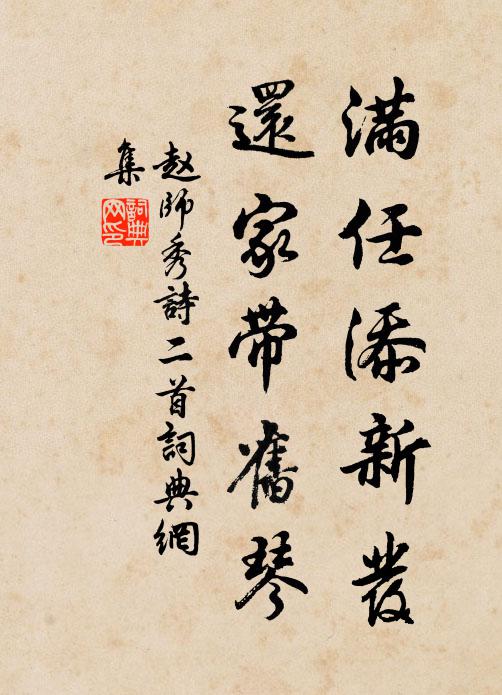 滿任添新發
還家帶舊琴
赵師秀詩二首詞典網
集
詞典
网印